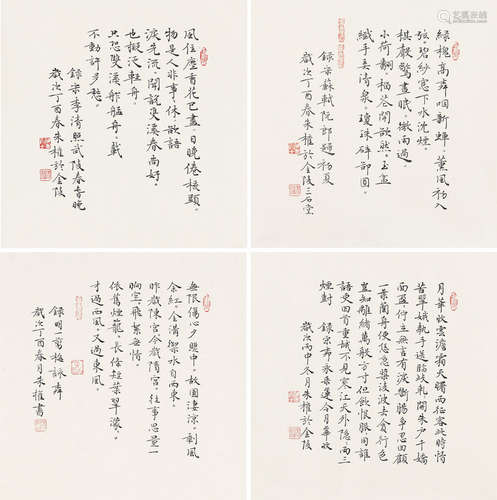 風住塵香花已盡。日晚倦梳頭。
物是人非事〻休。欲語
淚先流。聞說雙溪春尚好。
也擬泛輕舟。
只恐雙溪舴艋舟。載
不動許多愁。
錄宋李清照武陵春春晚
歲次丁酉春朱權於金陵
綠槐高柳咽新蟬。薰風初入
弦。碧紗窗下水沈煙。
棋聲驚晝眠。微雨過。
小荷翻。榴花開欲然。玉盆
纖手弄清泉。瓊珠碎卻圓。
錄宋蘇軾阮郎歸初夏
歲次丁酉春朱權於金陵三石堂
無限傷心夕照中。故國淒涼。剩
余紅。金溝御水自西東。
昨歲陳宮今歲隋宮。往事思量一
晌空。飛絮無情。
依舊煙籠。長條短葉翠濛〻
才過西風。又過東風。
錄明剪梅詠柳
歲次丁酉春月朱權書
月華收雲澹霜天曙西征客此時情
苦翠娥執手送臨歧軋〻開朱戶千嬌
面盈〻佇立無言有淚斷腸爭忍回顧
一葉蘭舟便恁急槳凌波去貪行色
豈知離緒萬般方寸但飲恨脈〻同誰
語更回首重城不見寒江天外隱〻兩三
煙樹
錄宋柳永采蓮令月華收
歲次丙申冬月朱權於金陵